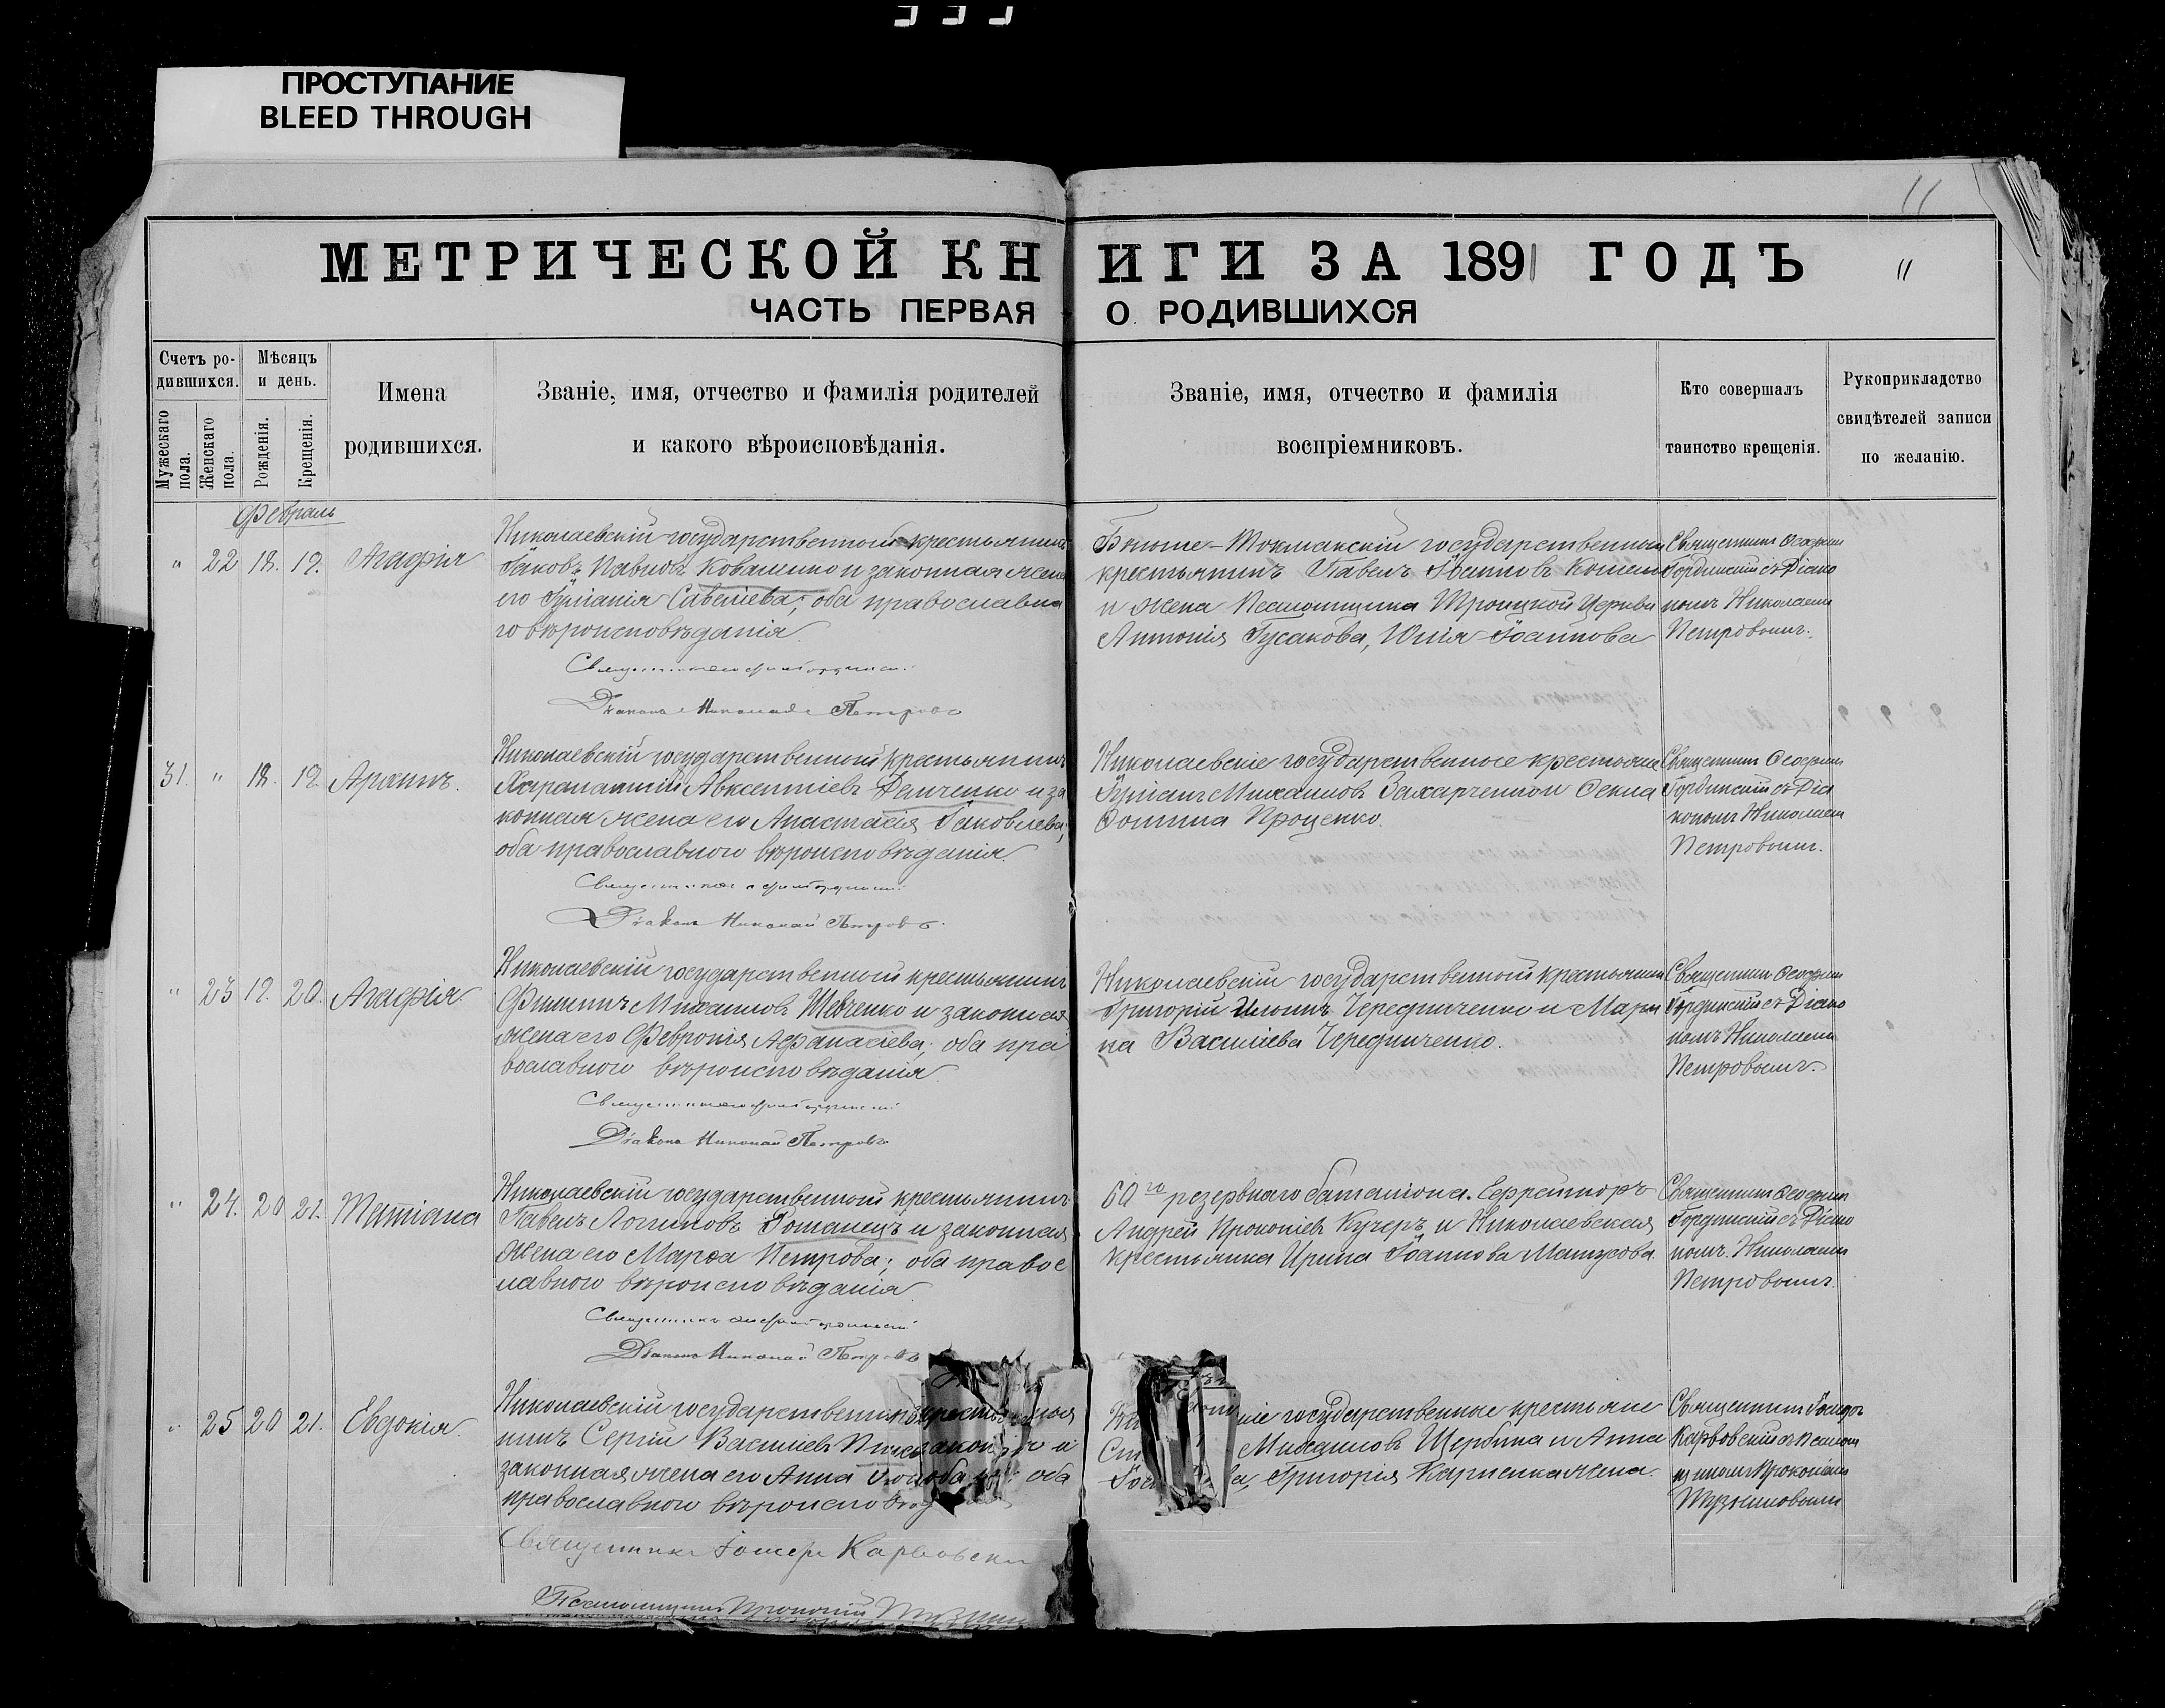 ПРОСТУПАНИЕ
BLEED THROUGH
11
МЕТРИЧЕСКОЙ КНИГИ ЗА 1891 ГОДЪ
ЧАСТЬ ПЕРВАЯ О РОДИВШИХСЯ
Счетъ родившихся.
Мужескаго пола.
Женскаго пола.
Мѣсяцъ и день.
Рожденія.
Крещенія.
Имена
родившихся.
Званіе, имя, отчество и фамилія родителей
и какого вѣроисповѣданія.
Званіе, имя, отчество и фамилія
воспріемниковъ.
Кто совершалъ
таинство крещенія.
Рукоприкладство
свидѣтелей записи
по желанію.
Февраль
" 22 18. 19. Агафія
Николаевскій государственный крестьянинъ
Іаковъ Павловъ Коваленко и законная жена
его Іуліанія Савеліева; оба православна
го вѣроисповѣданія.
Діаконъ Николай Петровъ
государственный
крестьянинъ Павелъ Іоанновъ
и жена Псаломщика Троицкой Церкви
Антонія Гусакова, Юлія Іоаннова
Священникъ Ѳеофилъ
Гординскій съ Діако
номъ Николаемъ
Петровымъ.
31. " 18. 19.
Николаевскій государственный крестьянинъ
Харалампій Авксентіевъ Демченко и за
конная жена его Анастасія Іаковлева;
оба православного вѣроисповѣданія.
Діаконъ Николай Петровъ.
Николаевскіе государственные крестьяне
Іуліанъ Михаиловъ Захарченко и Ѳекла
Ѳомина Проценко.
Священникъ Ѳеофилъ
Гординскій съ Діа
кономъ Николаемъ
Петровымъ.
" 23 19. 20. Агафія.
Николаевскій государственный крестьянинъ
Филиппъ Михаиловъ Шевченко и законная
жена его Февронія Афанасіева; оба пра
вославного вѣроисповѣданія.
Діаконъ Николай Петровъ
Николаевскій государственный крестьянинъ
Григорій Чередниченко и Мари
на Василіева Чередниченко.
Священникъ Ѳеофилъ
Гординскій съ Діако
номъ Николаемъ
Петровымъ.
" 24. 20 21. Татіана
Николаевскій государственный крестьянинъ
Павелъ Логиновъ Романецъ и законная
жена его Марѳа Петрова; оба правос
лавного вѣроисповѣданія.
Діаконъ Николай Петровъ
60го резервнаго баталіона Ефрейторъ
Андрей Прокопіевъ Кучеръ и Николаевская
крестьянка Ирина Іоаннова
Священникъ Ѳеофилъ
Гординскій съ Діако
номъ Николаемъ
Петровымъ.
" 25 20 21. Евдокія.
Николаевскій государственный
нинъ Сергій Василіевъ и
законная жена его Анна оба
православного
Священникъ Іосифъ Карвовскій
Псаломщикъ Прокопій
государственные крестьяне
Михаиловъ Щербина и Анна
Григорія Карпенка жена.
Священникъ Іосифъ
Карвовскій съ Псалом
щикомъ Прокопіемъ